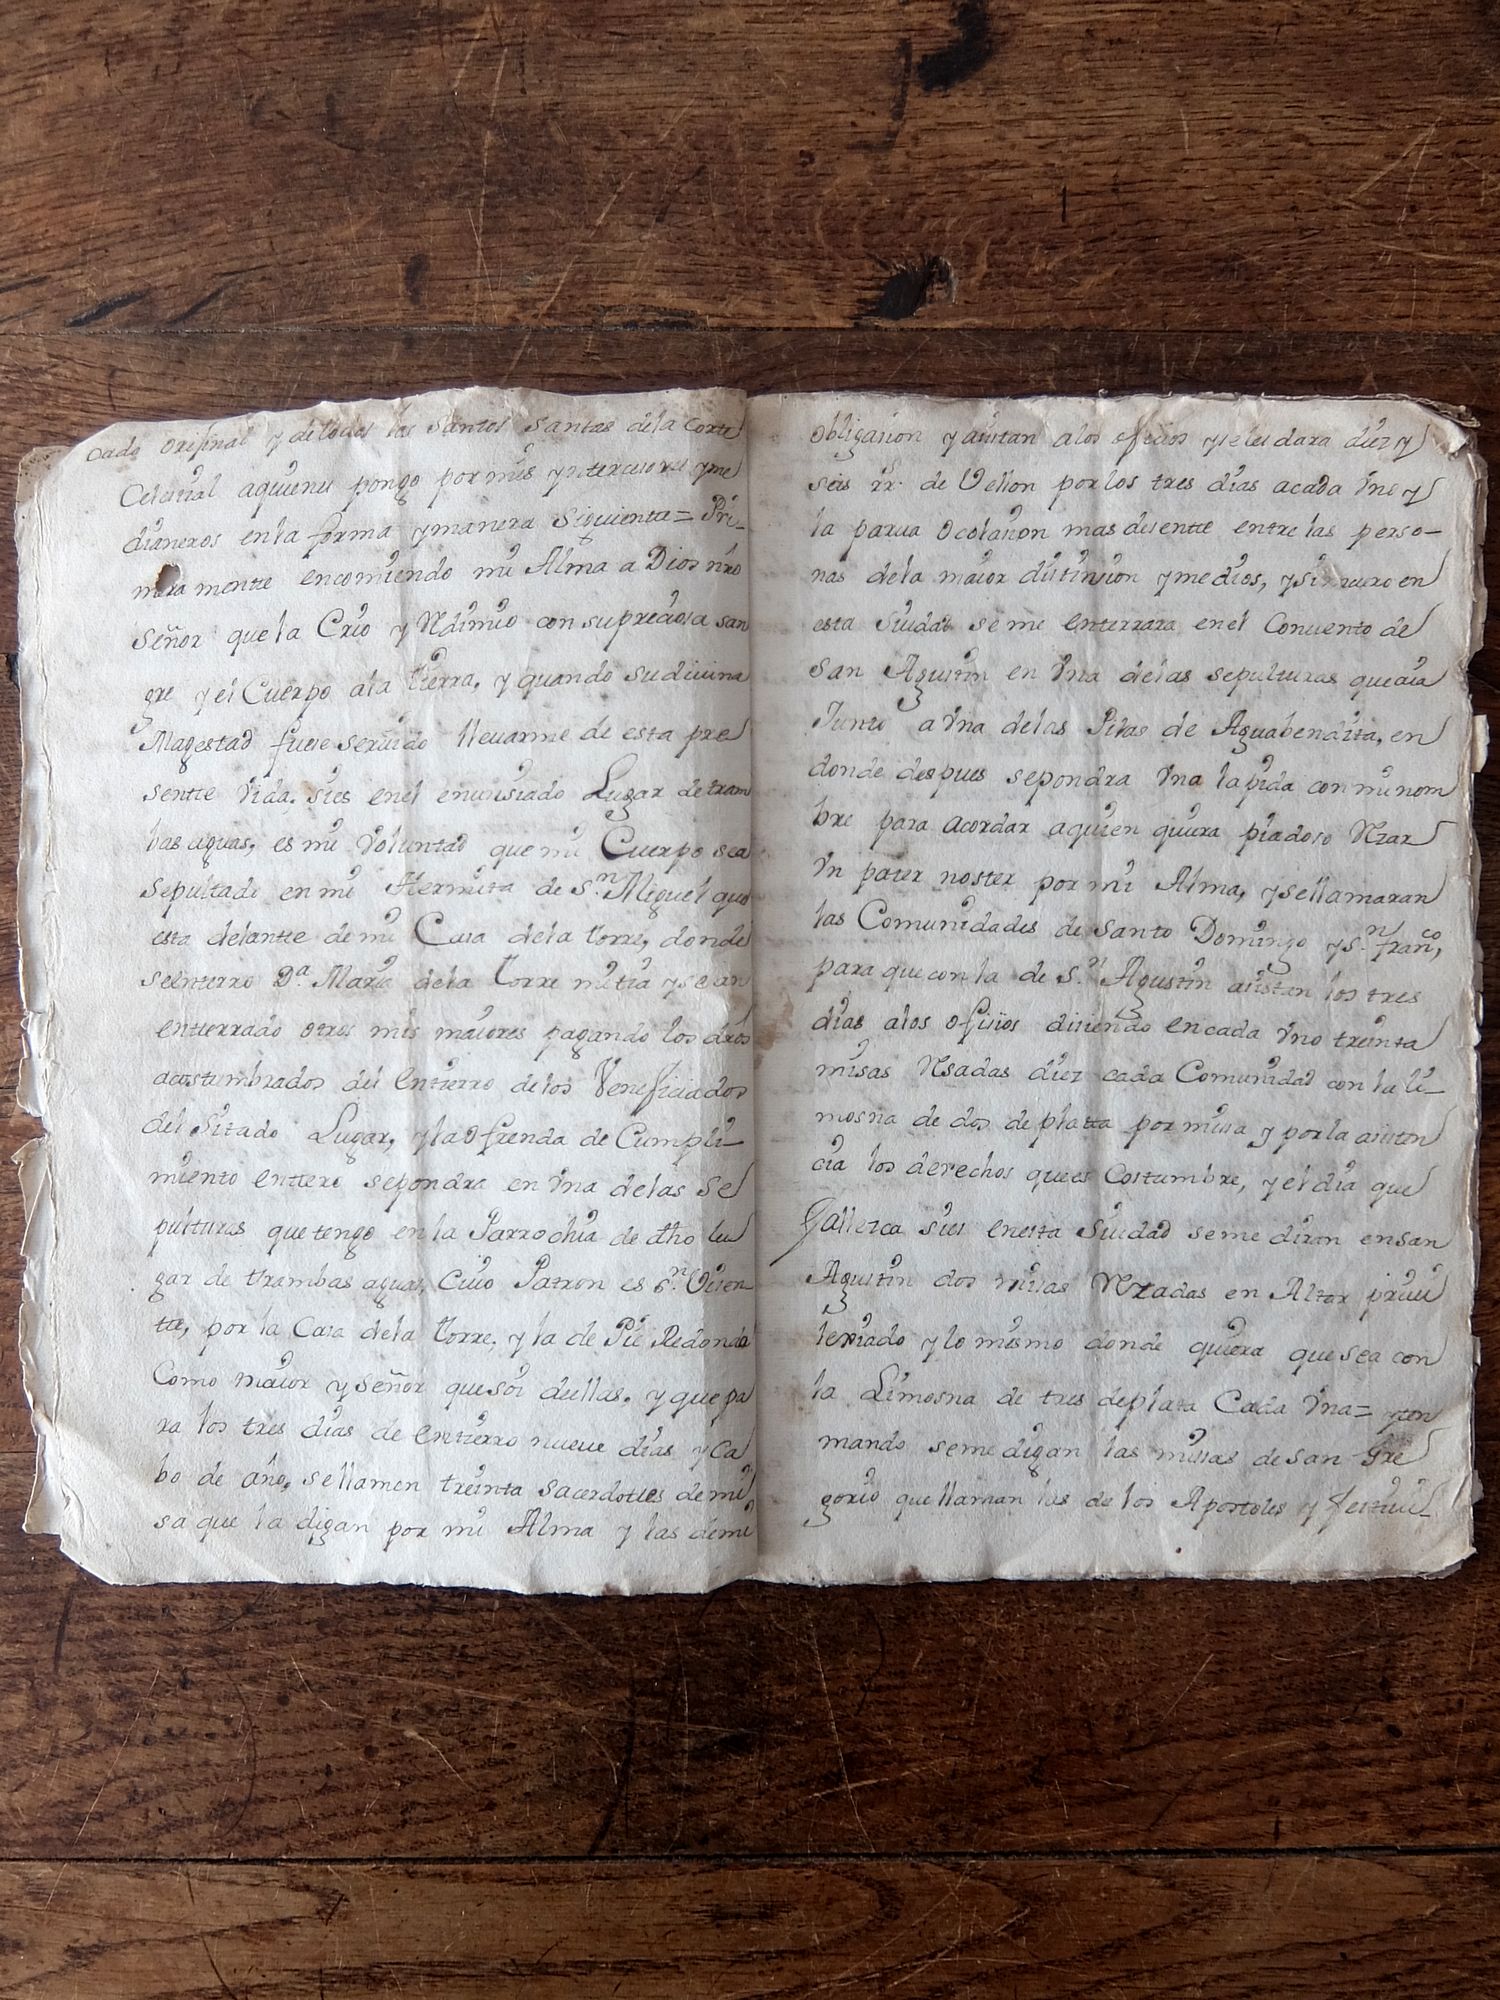 cado orijinal y de todos los Santos Santas de la Corte
Celestial aquienes pongo por mis ynterçesores yme
dianeros enla forma ymanera siguiente = Pri-
mera mentte encomiendo mi Alma a Dios nro
Señor que la Crio y Rdimio con su preciosa san
gre y el Cuerpo ala tierra, y quando su divina
Magestad fuere servido llevarme de esta pre
sentte vida, sies enel enunsiado Lugar de tram
bas aguas, es mi voluntad que mi Cuerpo sea
sepultado en mi Hermita de Sn. Miguel que
esta delantte de mi Casa dela torre, donde
seenterro Da. Maria dela torre mi tia y se an
entterrado otros mis maiores pagando los dros
acostumbrados del entierro delos Veneficiados
del Sitado Lugar, y la ofrenda de Cumpli-
miento enttero sepondra en vna delas se
pulturas que tengo en la Parrochia de dho lu
gar de trambas aguas, Cuio Patron es Sn. Visen-
tte, por la Casa dela torre, y la de Pie Redondo
Como maior y señor que soi dellas, y que pa
ra los tres dias de entierro nueve dias y Ca
bo de año, sellamen treinta sacerdottes de mi
sa que la digan por mi Alma y las demi
obligasion y asistan alos ofisios yseles dara diez y
seis rr. de Vellon por los tres dias acada vno y
la parva o colasion mas desentte entre las perso-
nas dela maior distinsion y medios, y si muero en
esta Siudad se me enterrara en el Convento de
san Agustin en vna delas sepulturas que aia
Junto a vna delas Pilas de Aguabendita, en
donde despues sepondra vna lapida con mi nom
bre para acordar aquien quiera piadoso Rzar
vn pater noster por mi Alma, y sellamaran
las Comunidades de Santo Domingo y Sn. Franco,
para que con la de Sn. Agustin asistan los tres
dias alos ofisios disiendo en cada vno treinta
misas Rsadas diez cada Comunidad con la li-
mosna de dos de platta por misa y por la asisten
cia los derechos que es Costumbre, y el dia que
fallezca sies enesta Siudad se me diran en san
Agustin dos misas Rzadas en Altar privi
lexiado y lo mismo donde quiera que sea con
la Limosna de tres deplata Cada vna = yten
mando seme digan las misas de san Gre
gorio que llaman las de los Apostoles y festivi-